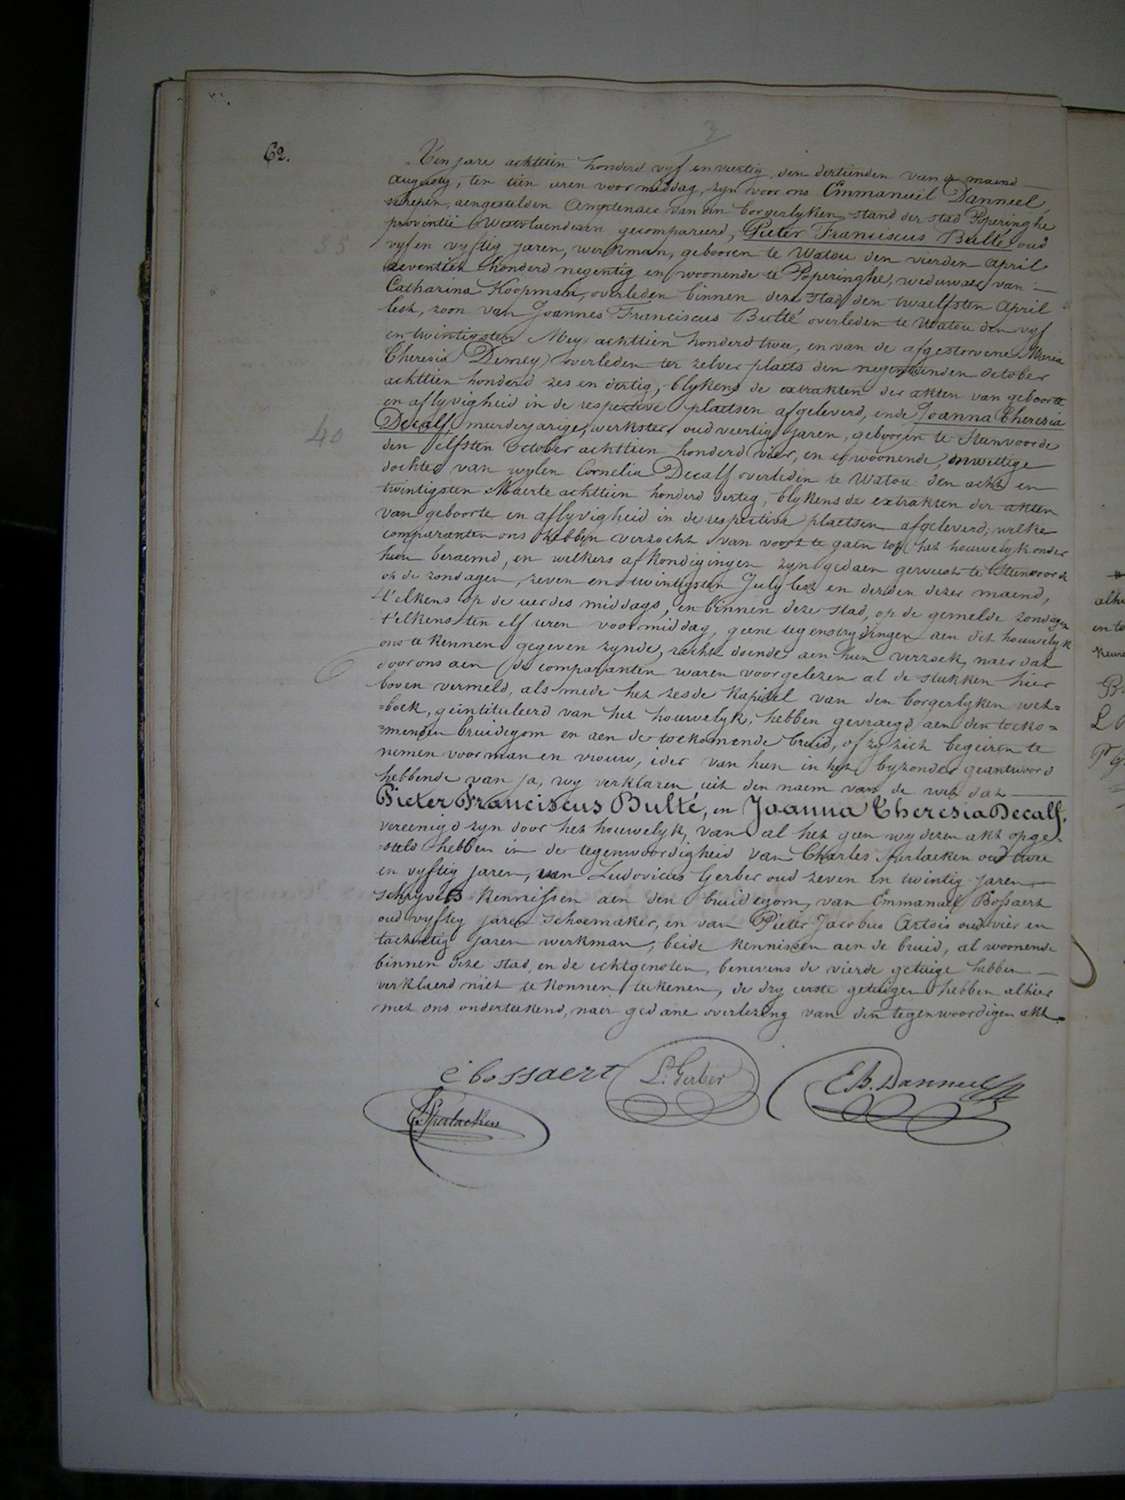 3
62.
Ten jare achttien honderd vyf en veertig, den dertienden van de maend
Augusty, ten tien uren voormiddag, zyn voor ons Emmanuël Danneel,
schepen, aengestelden Amptenaer van den borgerlyken stand der stad Poperinghe
provintie Westvlaenderen gecompareerd, Pieter Franciscus Bulté oud
55
vyf en vyftig jaren, werkman, geboren te Watou den vierden April
zeventien honderd negentig en woonende te Poperinghe, weduwaer van
Catharina Koopman, overleden binnen deze stad den twaelfsten April
lest, zoon van Joannes Franciscus Bulté overleden te Watou den vyf
en twintigsten Mey achttien honderd twee, en van de afgestorvene Maria
Theresia Demey, overleden ter zelver plaets den negentienden October
achttien honderd zes en dertig, blykens de extrakten der akten van geboorte
en aflyvigheid in de respective plaetsen afgeleverd, ende Joanna Theresia
40
Decalf, meerderjarige, werkster oud veertig jaren, geboren te Steenvoorde
den elfsten October achttien honderd vier, en er woonende, onwettige
dochter van wylen Cornelia Decalf overleden te Watou den acht en
twintigsten Maerte achttien honderd dertig, blykens de extrakten der akten
van geboorte en aflyvigheid in de respective plaetsen afgeleverd; welke
comparanten ons hebben verzocht van voort te gaen tot het houwelyk onder
hun beraemd, en welkers afkondigingen zyn gedaen geweest te Steenvoorde
op de zondagen, zeven en twintigsten July lest en derden dezer maend,
t'elkens op de uer des middags, en binnen deze stad, op de gemelde zondagen
t'elkens ten elf uren voormiddag, geene tegenstrydingen aen dit houwelyk
ons te kennen gegeven zynde, recht doende aen hun verzoek, naer dat
door ons aen de comparanten waren voorgelezen al de stukken hier
boven vermeld, als mede het zesde kapittel van den borgerlyken wet=
=boek, geïntituleerd van het houwelyk, hebben gevraegd aen den toeko=
=menden bruidegom en aen de toekomende bruid, of zy zich begeiren te
nemen voor man en vrouw, ider van hun in het byzonder geantwoord
hebbende van ja, wy verklaren uit den naem van de wet dat
Pieter Franciscus Bulté, en Joanna Theresia Decalf,
vereenigd zyn door het houwelyk, van al het geen wy dezen akt opge=
steld hebben in de tegenwoordigheid van Charles oud twee
en vyftig jaren, van Ludovicus Gerber oud zeven en twintig jaren
schryvers kennissen aen den bruidegom, van Emmanuel Bossaert
oud vyftig jaren schoemaker, en van Pieter Jacobus Artois oud vier en
tachentig jaren werkman, beide kennissen aen de bruid, al woonende
binnen deze stad, en de echtgenoten, benevens de vierde getuige hebben
verklaerd niet te konnen teekenen, de dry eerste getuigen hebben alhier
met ons onderteekend, naer gedane overlezing van den tegenwoordigen akt.
E bossaert L. Gerber E.B. Danneel